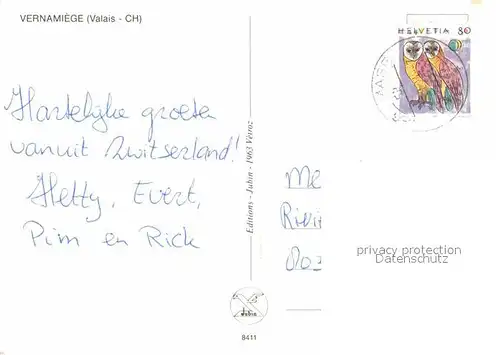 VERNAMIÈGE (Valais - CH)
HELVETIA 80
Hartelijke groeten
vanuit Zwitserland!
Hetty, Evert,
Pim en Rick
Editions - Jubin - 1963 Vétroz
Me
Rivi
privacy protection
Datenschutz
Jubin
8411